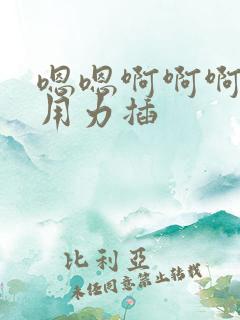 嗯嗯啊啊啊
用力插
比利亞
未经同意禁止转载